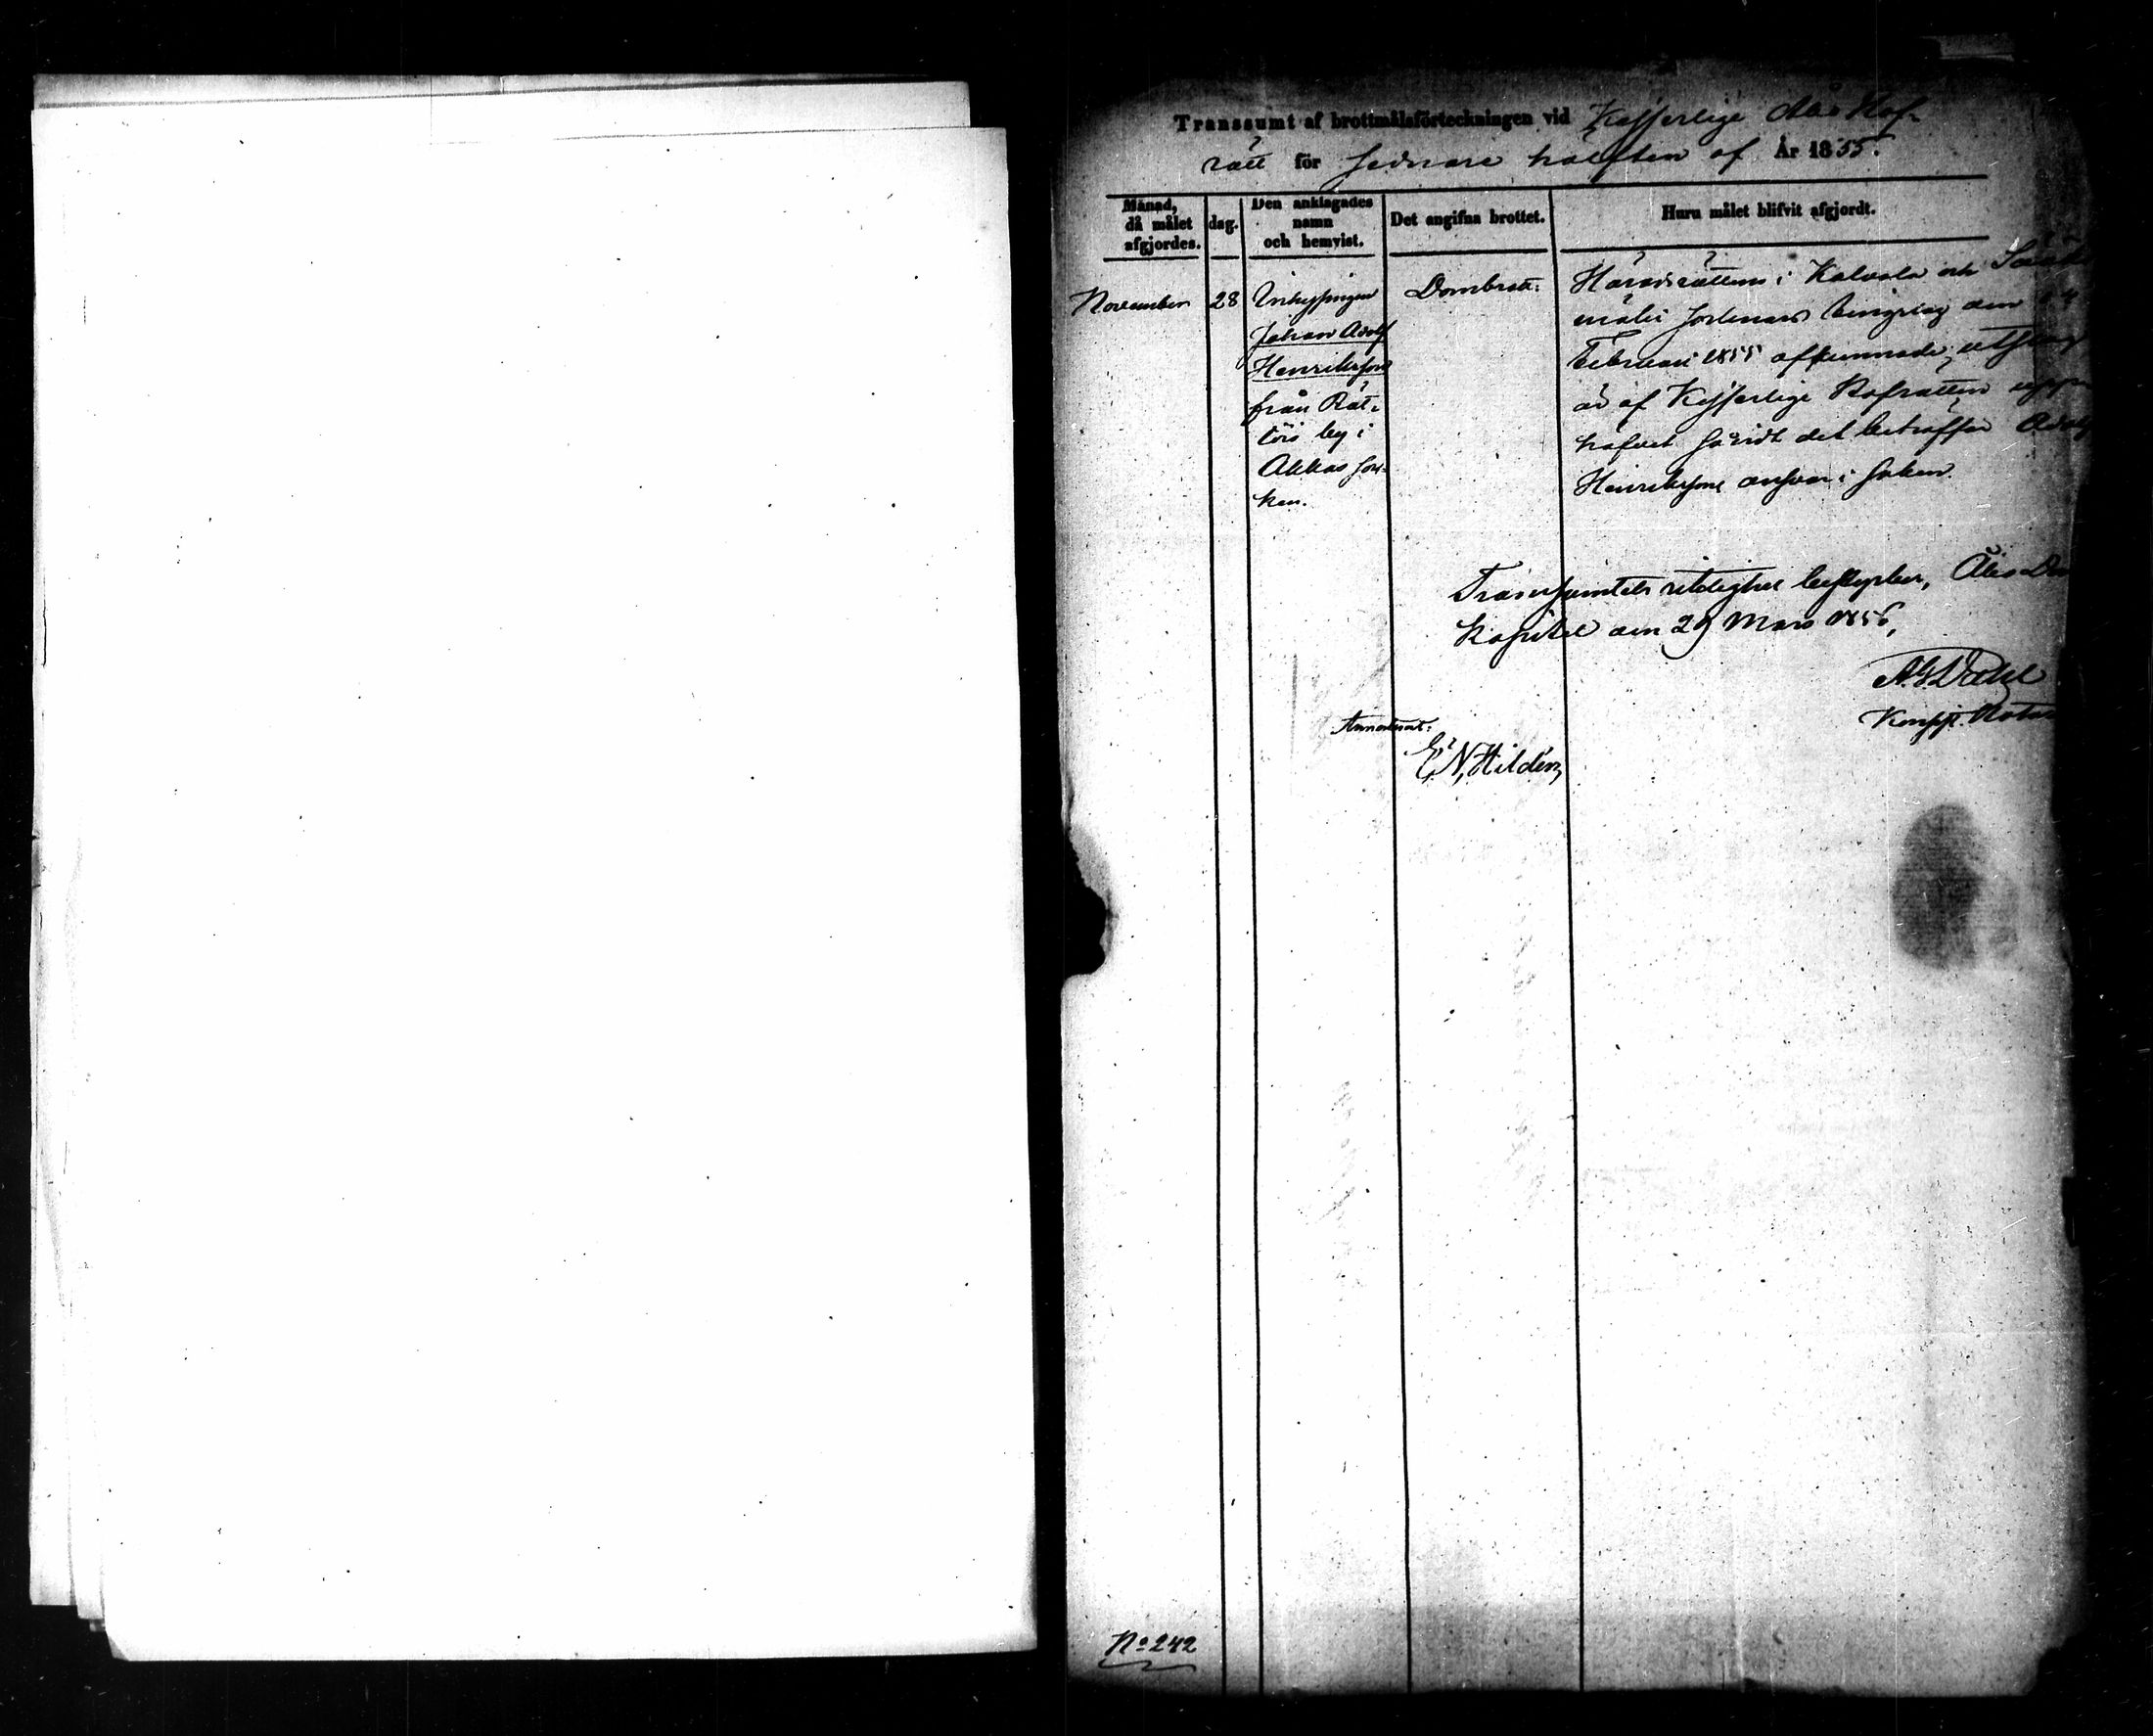 Transsumt af brottmålsförteckningen vid Kejserlige Åbo Hof-
rätt för sednare hälften af År 1855.
Månad, då målet afgjordes.
dag.
Den anklagades namn och hemvist.
Det angifna brottet.
Huru målet blifvit afgjordt.
November
28
Inhysingen
Johan Adolf
Henriksson
från Rät-
töis by i
Akkas soc-
ken.
Dombrott:
Häradsrättens i Kalvola och Sääks-
mäki socknars tingslag den
Februari 1855 afkunnade utslag
är af Kejserlige Hofrätten upp-
häfvet såvidt det beträffar Adolf
Henrikssons ansvar i saken.
Transsumtets riktighet bestyrker, Åbo Dom
kapitel den 29 Mars 1856,
A. G. Dahl
Konsist. Notar
Annoterat:
E. N. Hildén
No 242